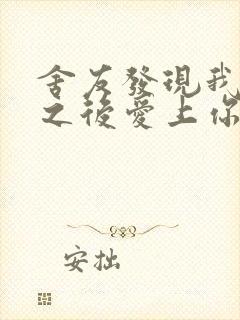 舍友發現我
之後愛上你
安拙